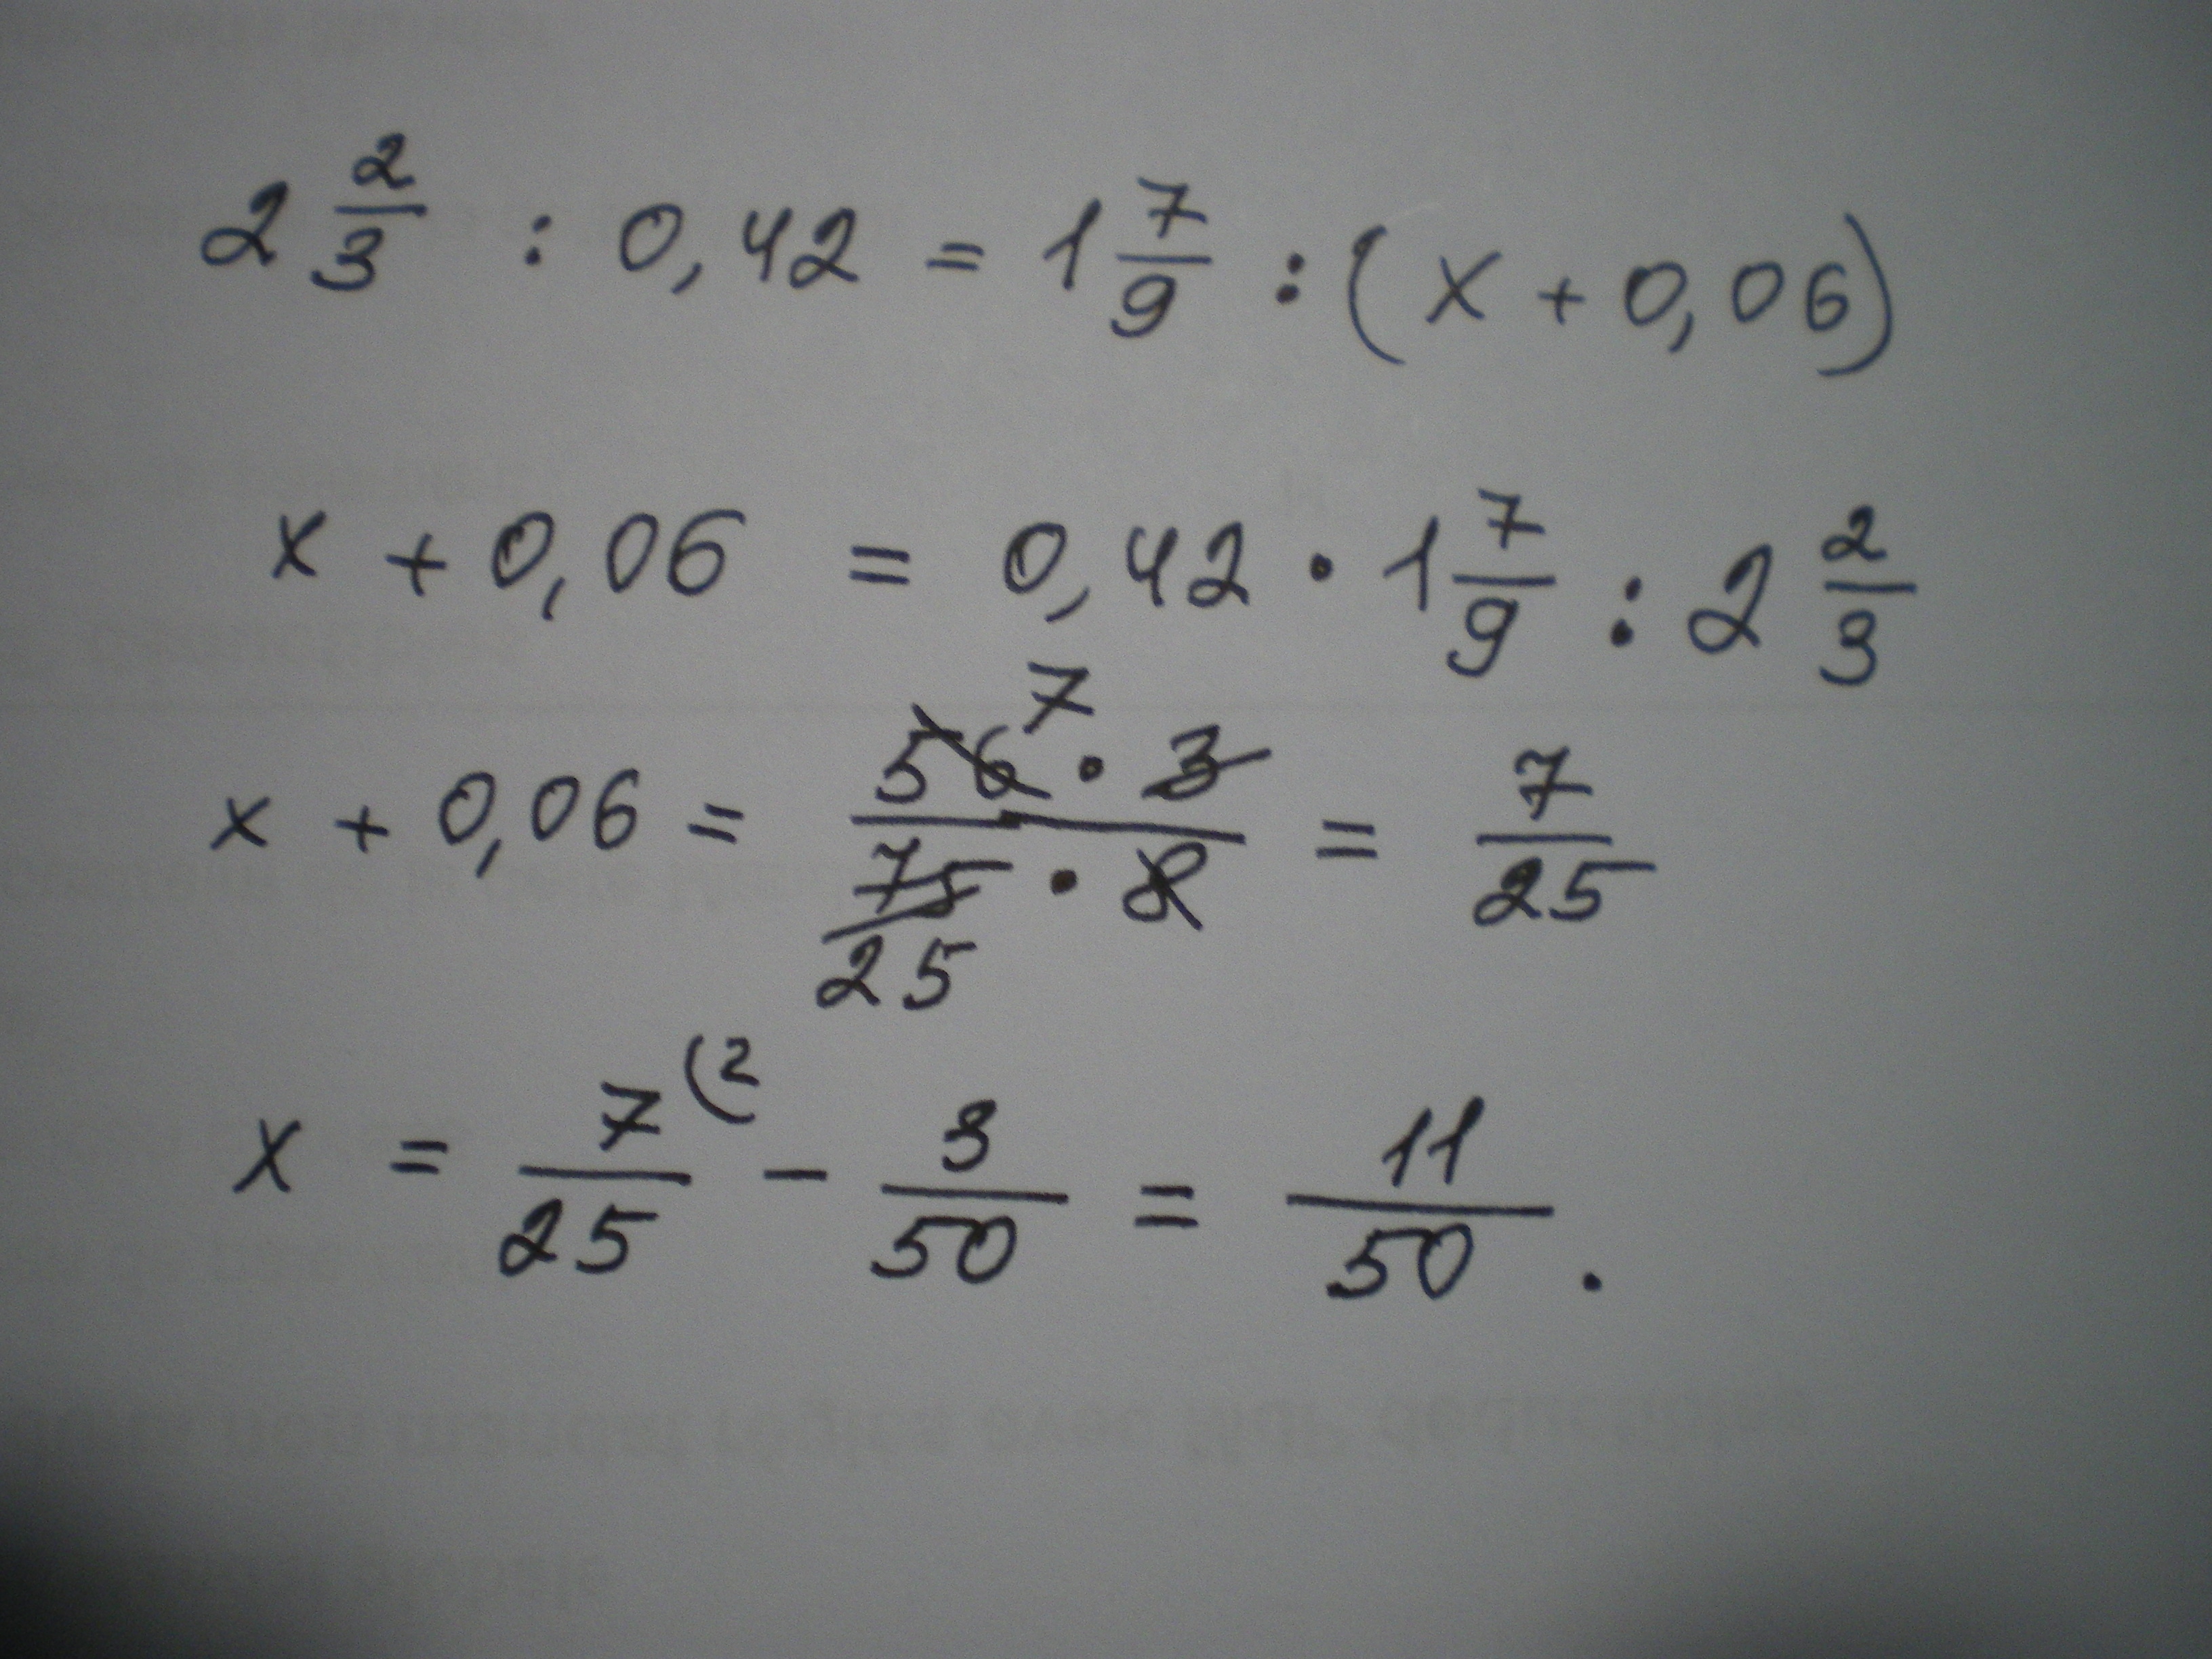 2 2/3 : 0,42 = 1 7/9 : (x + 0,06)
x + 0,06 = 0,42 · 1 7/9 : 2 2/3
7
x + 0,06 = 56 · 3 / 75 · 8 = 7/25
25
x = 7/25 (2 − 3/50 = 11/50 .